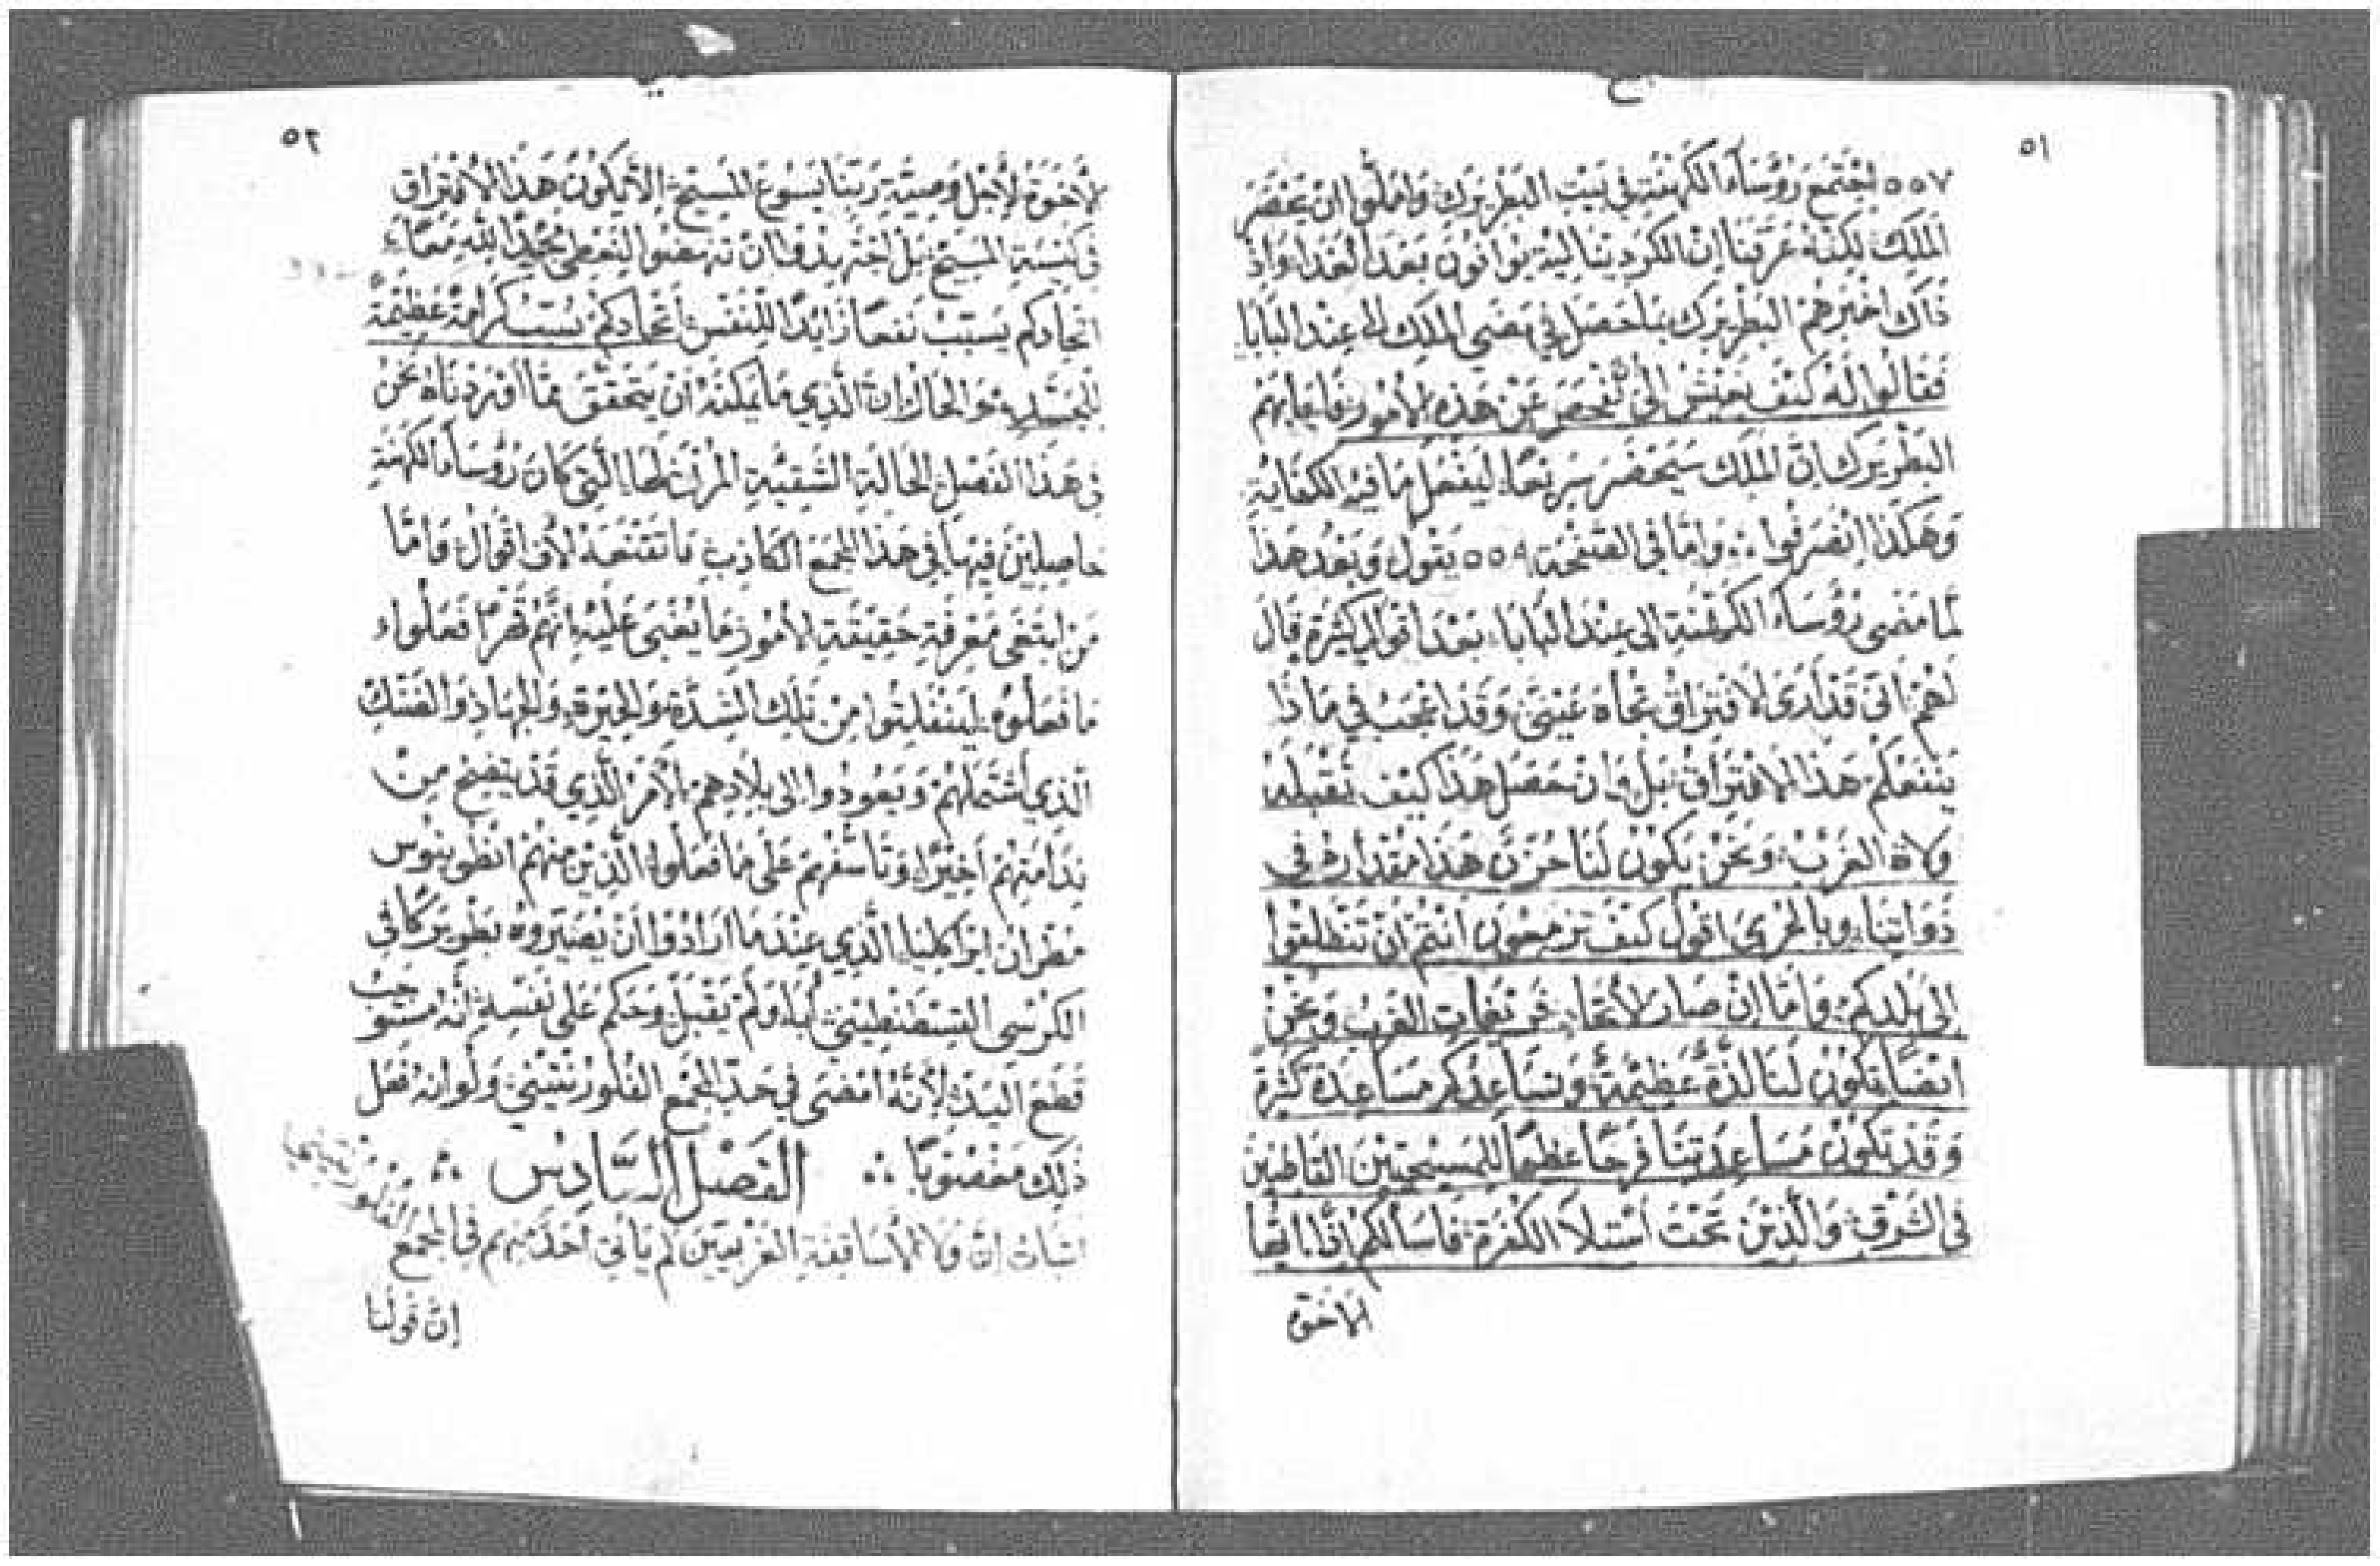 ٥١
٥٥٧ اجتمع رؤساء الكهنة في بيت البطريرك وامّلوا ان يحضر
الملك لكنه عرفنا ان الكرديناليه يوانون بعد الغدا واذ
ذاك اخبرهم البطريرك بما حصل في مضي الملك الى عند البابا
فقالوا له كيف نحن الى نفحص عن هذه الامور فاجابهم
البطريرك ان الملك سيحضر سريعًا ليفعل ما فيه الكفاية
وهكذا انصرفوا ∴ وامّا في الصفحة ٥٥٩ يقول وبعد هذا
لما مضى رؤساء الكهنة الى عند البابا بعد اقوال كثيرة قال
لهم انّي قد ارى الافتراق تجاه عينيّ وقد اعجب في ماذا
ينفعكم هذا الافتراق بل وان حصل هذا كيف تقبله
ولاة الغرب ونحن يكون لنا حزن هذا مقداره في
ذواتنا وبالحري اقول كيف تزمعون انتم ان تنطلقوا
الى بلدكم وامّا ان صار الاتحاد ولاة الغرب ونحن
ايضًا تكون لنا لذّة عظيمة ونساعدكم مساعدة كثيرة
وقد تكون مساعدتنا فرحًا عظيمًا للمسيحيين القاطنين
في الشرق والذين تحت استيلا الكفرة فاسألكم ايها
الاخوة
٥٢
الاخوة لاجل وصية ربنا يسوع المسيح الّا يكون هذا الافتراق
في كنيسة المسيح بل اجتهدوا ان تنهضوا لنعطي مجدًا لله معًا
اتحادكم يسبب نفعًا زايدًا للنفس اتحادكم يسبب كرامة عظيمة
للجسد والحال ان الذي ما يمكنه ان يتحقق ممّا اوردناه نحن
في هذا الفصل الحالة الشقية المرثى لها التي كان رؤساء الكهنة
حاصلين فيها في هذا المجمع الكاذب ما تنفعه الاف اقوال وامّا
من ابتغى معرفة حقيقة الامور فما يغبى عليه انهم قهرًا فعلوا
ما فعلوه لينفلتوا من تلك الشدّة والحيرة والجهاد والضنك
الذي اشتملهم ويعودوا الى بلادهم الامر الذي قد يتضح من
ندامتهم اخيرًا وتأسفهم على ما فعلوا الذين منهم انطونيوس
مطران ايراكليا الذي عندما ارادوا ان يصيّروه بطريركًا في
الكرسي القسطنطيني أبا ولم يقبل وحكم على نفسه انه مستوجب
قطع اليد لأنه امضى في حدّ المجمع الفلورنتيني ولو انه فعل
ذلك مغصوبًا ∴ الفصل السادس ∴
اثبات ان ولا الاساقفة الغربيين لم ياتي احد منهم في المجمع
الفلورنتيني
إن قولنا